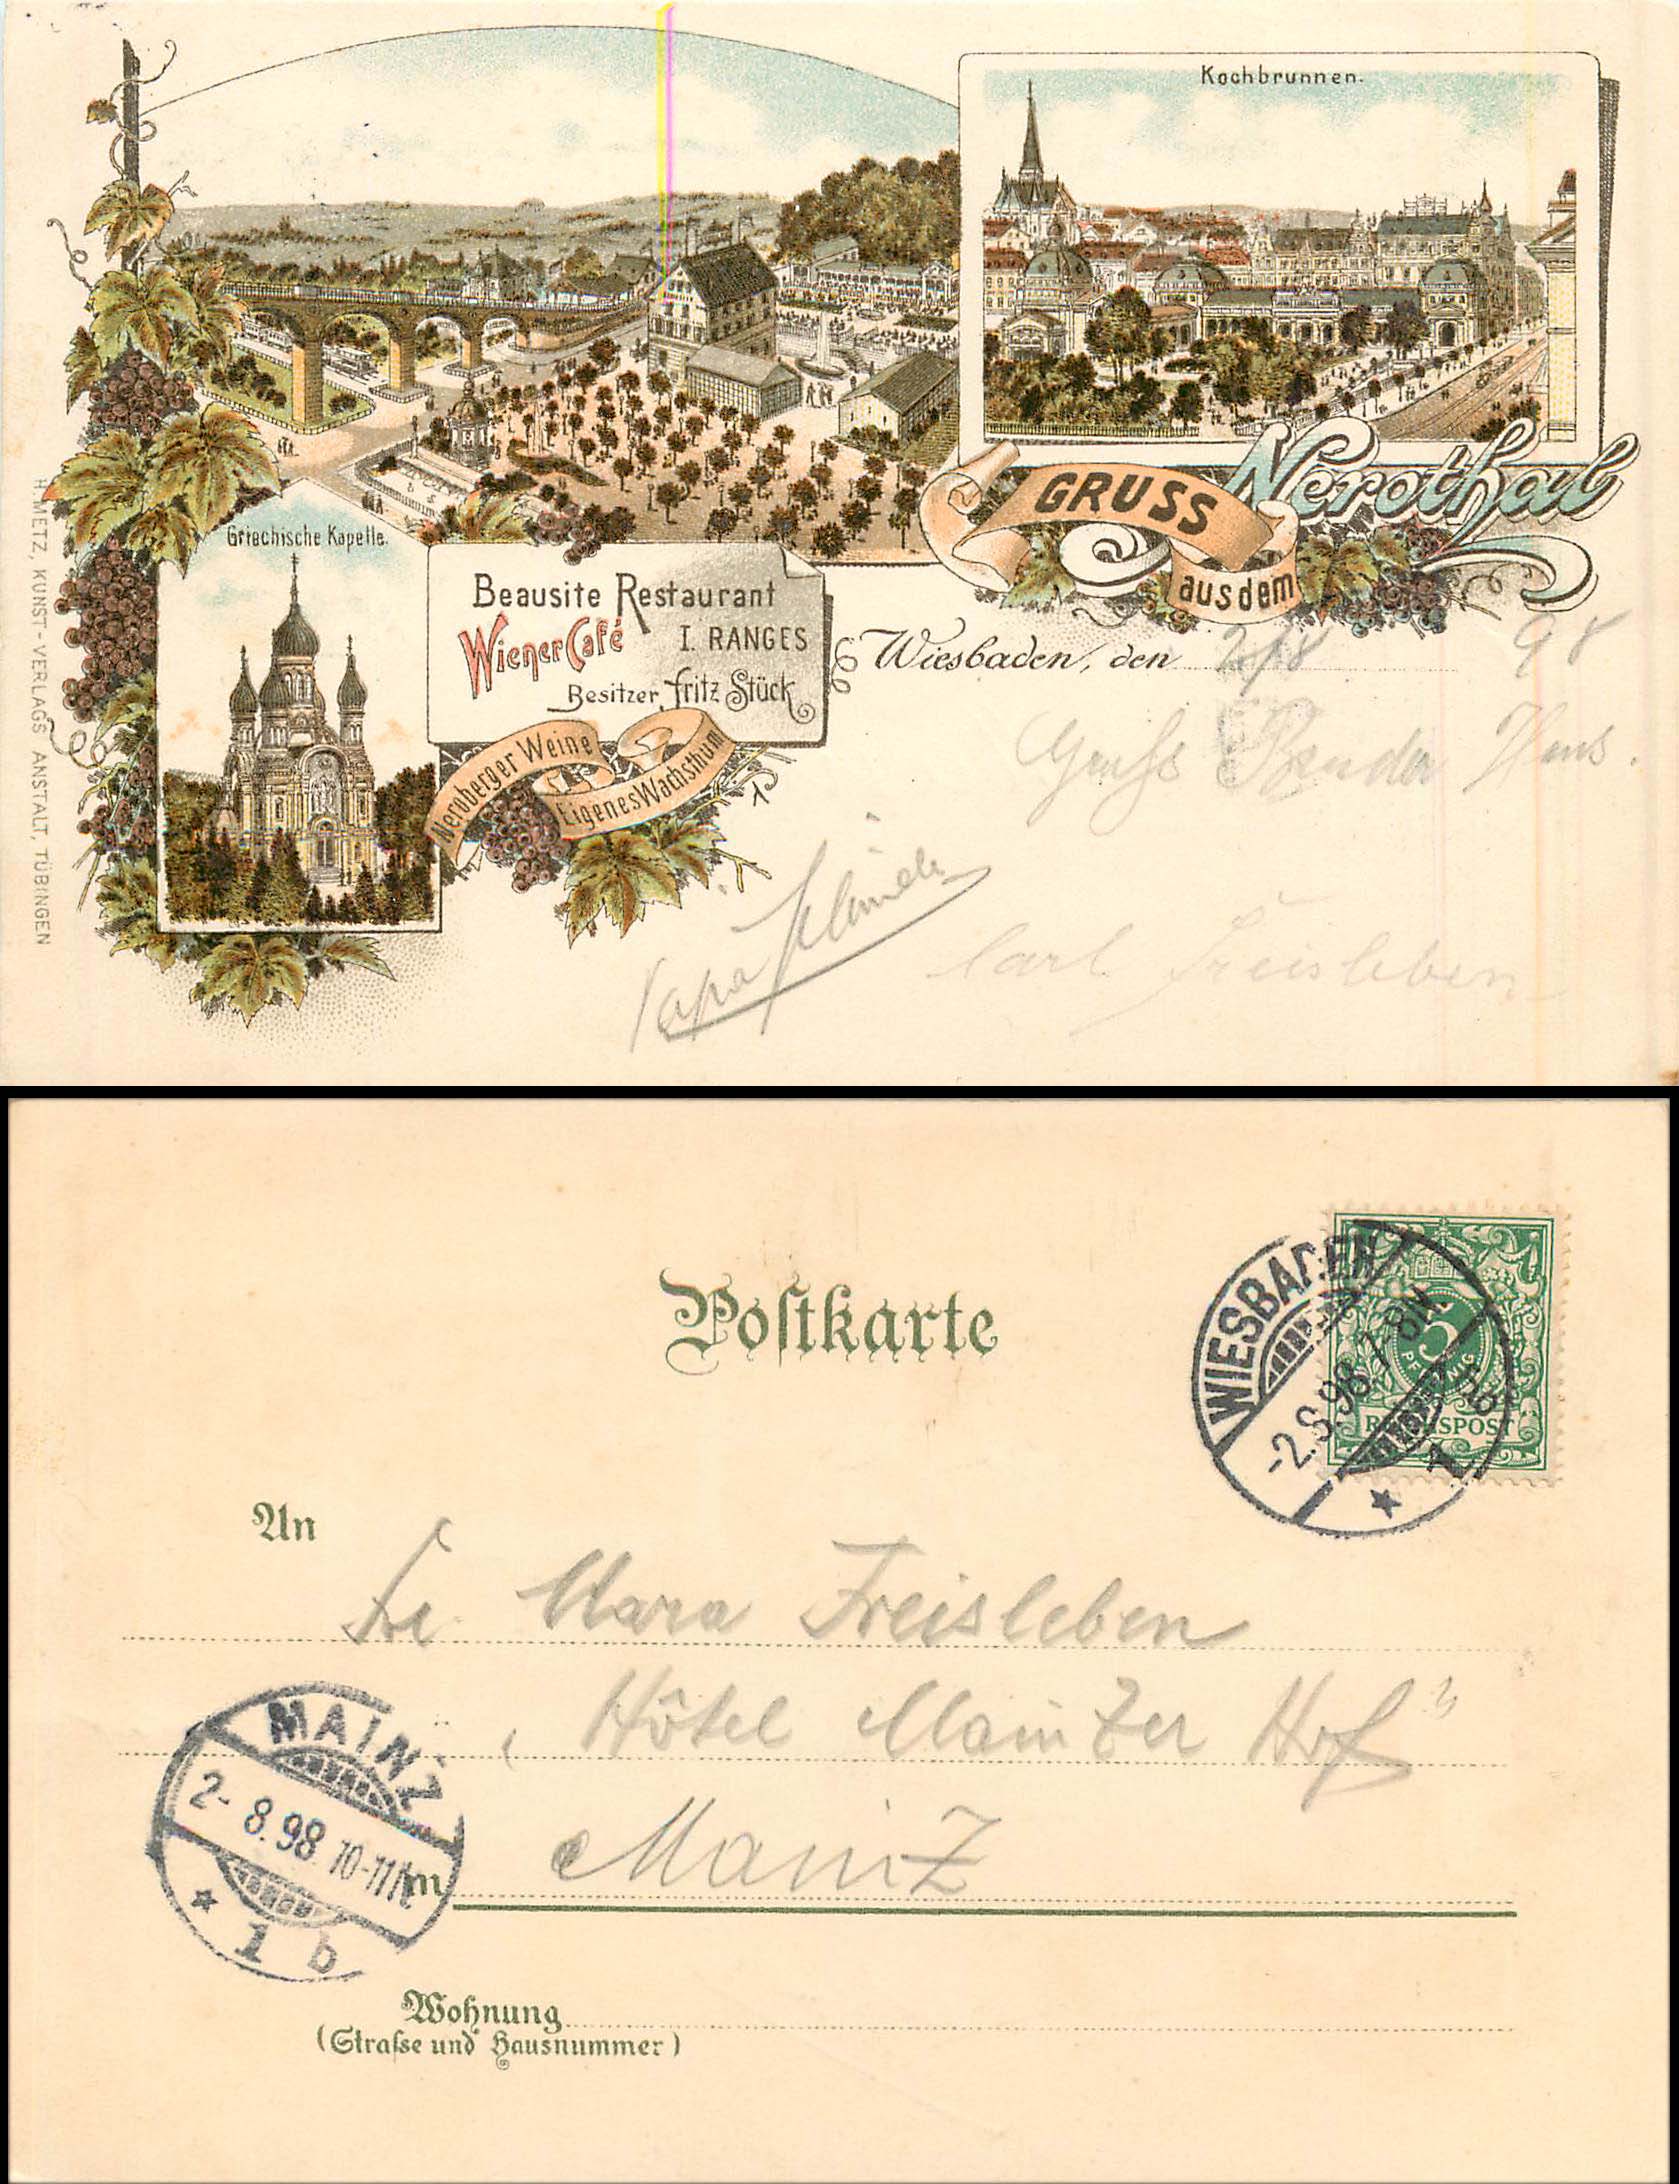 Kochbrunnen.
GRUSS
aus dem
Nerothal
Griechische Kapelle.
Beausite Restaurant
Wiener Café
I. RANGES
Besitzer Fritz Stück
Neroberger Weine
Eigenes Wachsthum
Wiesbaden, den 2/8 98
Gruß Hans.
Papa
Carl Freisleben
H. METZ, KUNST-VERLAGS ANSTALT, TÜBINGEN
Postkarte
WIESBADEN
-2.8.98. 7-8N.
1
5
PFENNIG
REICHSPOST
An
Mara Freisleben
„Hôtel Mainzer Hof"
Mainz
MAINZ
2-8.98 10-11N.
1 b
Wohnung
(Straße und Hausnummer)